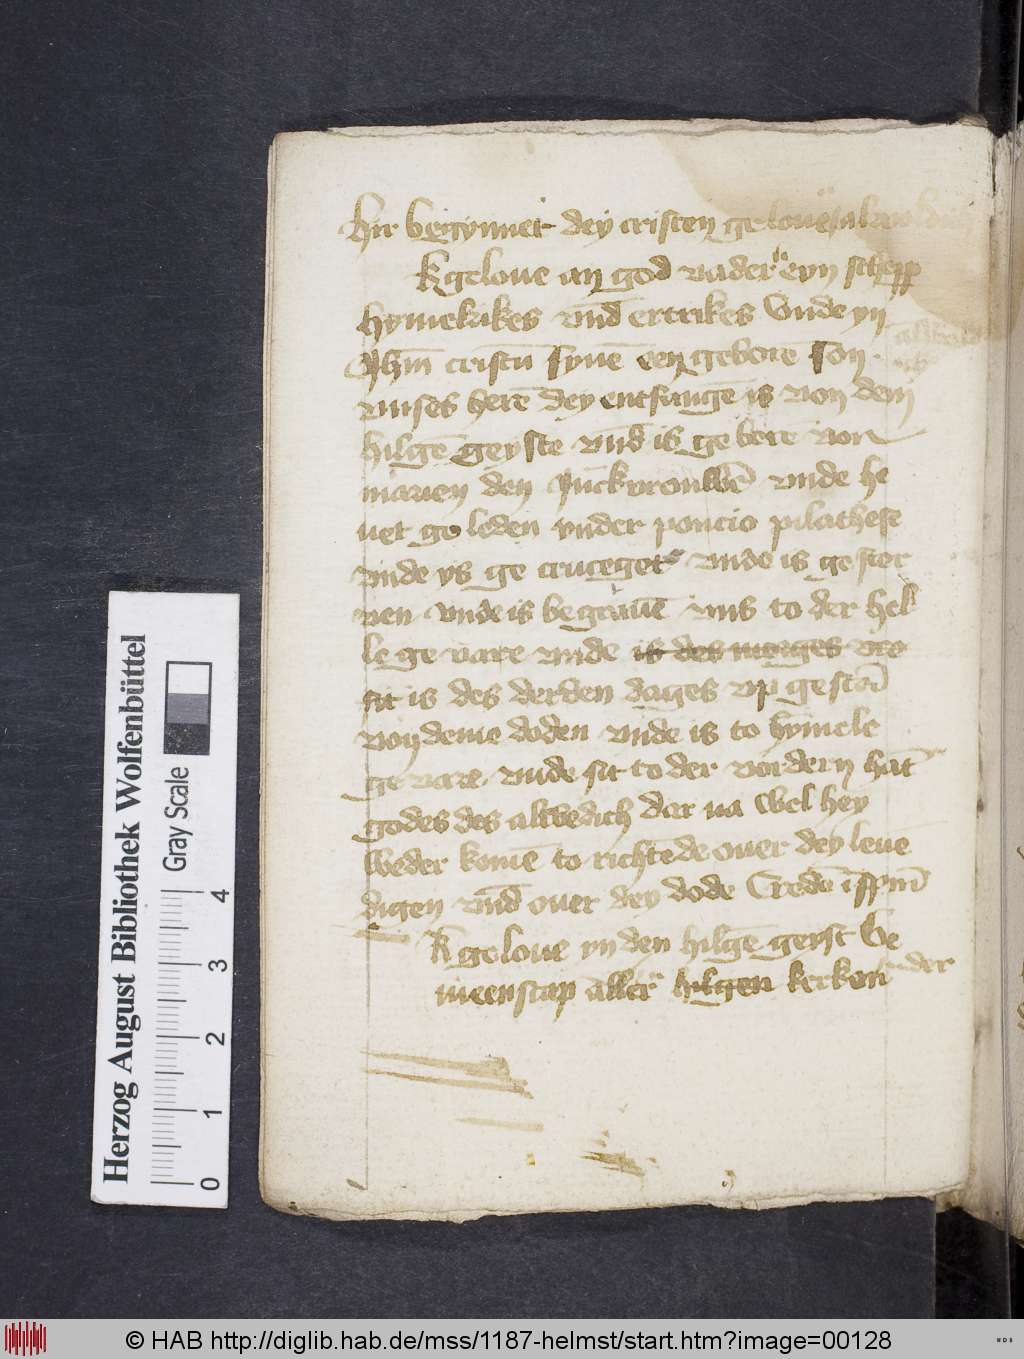 Hir begynnet dey cristen geloue
K geloue an god vader eyn schepp
hymelrikes vnd ertrikes Vnde yn
Jhm cristū synē een gebore son
vnses herē dey entfangē is von dem
hilgē geyste vnd is ge borē von
marien den Junckvrouwē vnde he
uet ge leden vnder poncio pilathese
vnde ys ge cruceget vnde is ge stor
uen vnde is begrauē vnd to der hel
le ge vare vnde is des morges vro
sit is des derden dages vp ge stan
von deme doden vnde is to hymele
ge vare vnde sit to der vordern hāt
godes des alwedich dar na wel hey
weder komē to richtēde ouer dey leuē
digen vnd ouer dey dode Credo ī spm̄
K geloue yn den hilgē geyst Ge
meenscap aller hilgen kerken der
Herzog August Bibliothek Wolfenbüttel
Gray Scale
0 1 2 3 4
© HAB http://diglib.hab.de/mss/1187-helmst/start.htm?image=00128